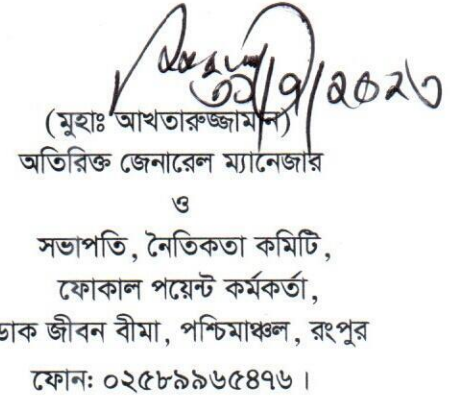 ৩১/৭/২০২৩
(মুহাঃ আখতারুজ্জামান)
অতিরিক্ত জেনারেল ম্যানেজার
ও
সভাপতি, নৈতিকতা কমিটি,
ফোকাল পয়েন্ট কর্মকর্তা,
ডাক জীবন বীমা, পশ্চিমাঞ্চল, রংপুর
ফোনঃ ০২৫৮৯৯৬৫৪৭৬।